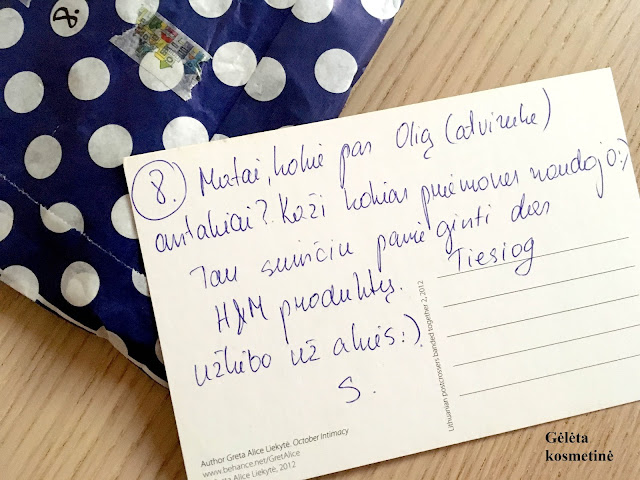 8.
8. Matai, kokie pas Olią (atvirukė)
antakiai? Kaži kokias priemones naudojo:)
Tau siunčiu pamėginti dar
H&M produktų. Tiesiog
užkibo už akies:).
S.
Author Greta Alice Liekytė. October Intimacy
www.behance.net/GretAlice
Alice Liekytė, 2012
Lithuanian postcrossers banded together 2, 2012
Gėlėta
kosmetinė